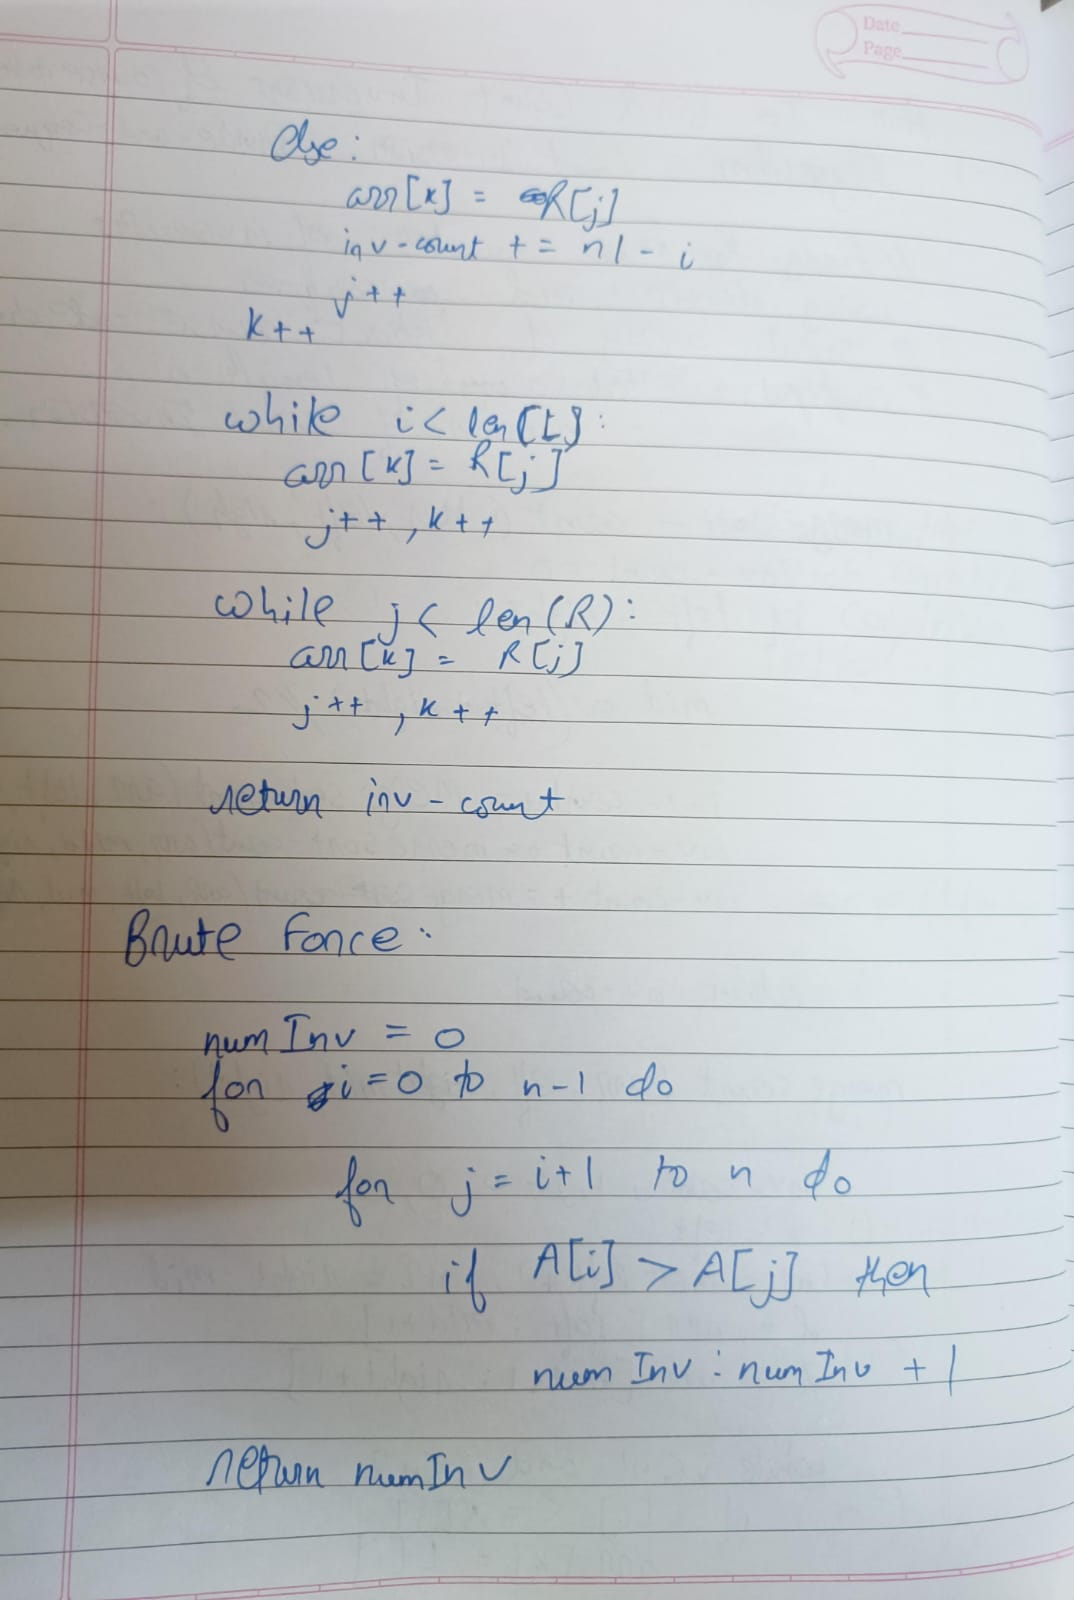 Date
Page
Else:
arr[k] = R[j]
inv-count += n1 - i
j++
k++
while i < len[L]:
arr[k] = R[j]
j++, k++
while j < len(R):
arr[k] = R[j]
j++, k++
return inv-count
Brute Force:
numInv = 0
for i=0 to n-1 do
for j = i+1 to n do
if A[i] > A[j] then
numInv : numInv + 1
return numInv